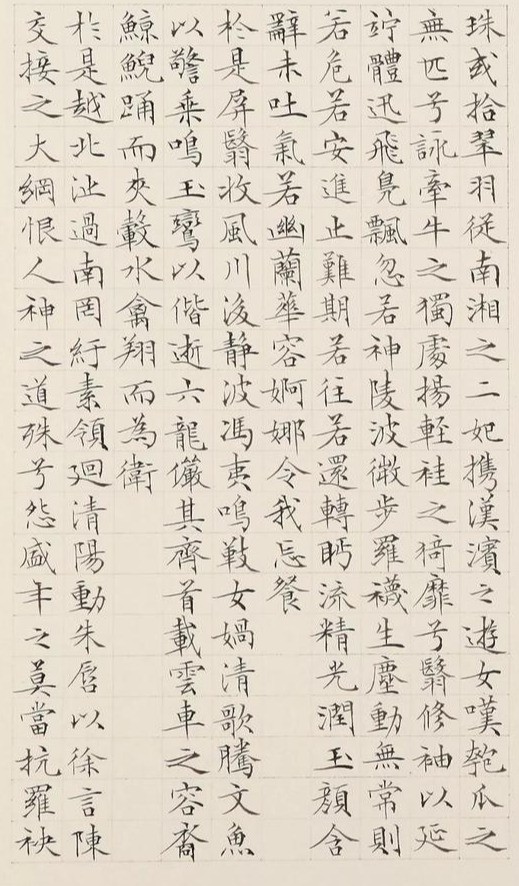 珠或拾翠羽從南湘之二妃携漢濱之遊女嘆匏瓜之
無匹兮詠牽牛之獨處揚輕袿之猗靡兮翳修袖以延
竚體迅飛鳧飄忽若神陵波微步羅襪生塵動無常則
若危若安進止難期若往若還轉眄流精光潤玉顏含
辭未吐氣若幽蘭華容婀娜令我忘餐
於是屏翳收風川后靜波馮夷鳴鼓女媧清歌騰文魚
以警乘鳴玉鸞以偕逝六龍儼其齊首載雲車之容裔
鯨鯢踊而夾轂水禽翔而為衛
於是越北沚過南岡紆素領迴清陽動朱唇以徐言陳
交接之大綱恨人神之道殊兮怨盛年之莫當抗羅袂